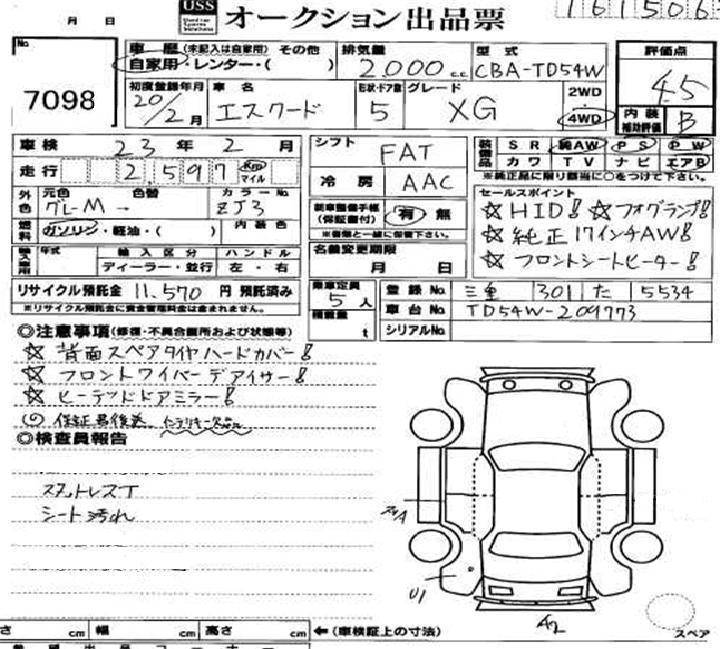 USS オークション出品票
161506
月 日
No 7098
車歴 (未記入は自家用) その他
自家用・レンター・( )
排気量 2,000 c.c.
型式 CBA-TD54W
評価点 4.5
初度登録年月 20/2月
車名 エスクード
形状・ドア数 5
グレード XG
2WD
4WD
内装補助評価 B
車検 23年2月
走行 2,597 Km マイル
外色 元色 グレーM 色替 →
カラーNo. ZJ3
燃料 ガソリン・軽油・( ) 内装色
輸入車用 年式 輸入区分 ディーラー・並行
ハンドル 左・右
リサイクル預託金 11,570 円 預託済み
※リサイクル預託金に資金管理料金は含まれません。
シフト FAT
冷房 AAC
新車整備手帳(保証書付) 有 無
※書類と一緒に保管下さい。
名義変更期限
月 日
乗車定員 5人
積載量 t
装備品 SR 純AW PS PW
カワ TV ナビ エアB
※純正品に限り該当に○をつけて下さい。
セールスポイント
☆HID! ☆フォグランプ!
☆純正17インチAW!
☆フロントシートヒーター!
登録No. 三重 301 た 5534
車台No. TD54W-209773
シリアルNo.
◎注意事項(修復・不具合箇所および状態等)
☆背面スペアタイヤハードカバー!
☆フロントワイパーデアイサー!
☆ヒーテッドドアミラー!
◎検査員報告
スタットレスT
シート汚れ
U1
A2
スペア
さ cm 幅 cm 高さ cm ←(車検証上の寸法)